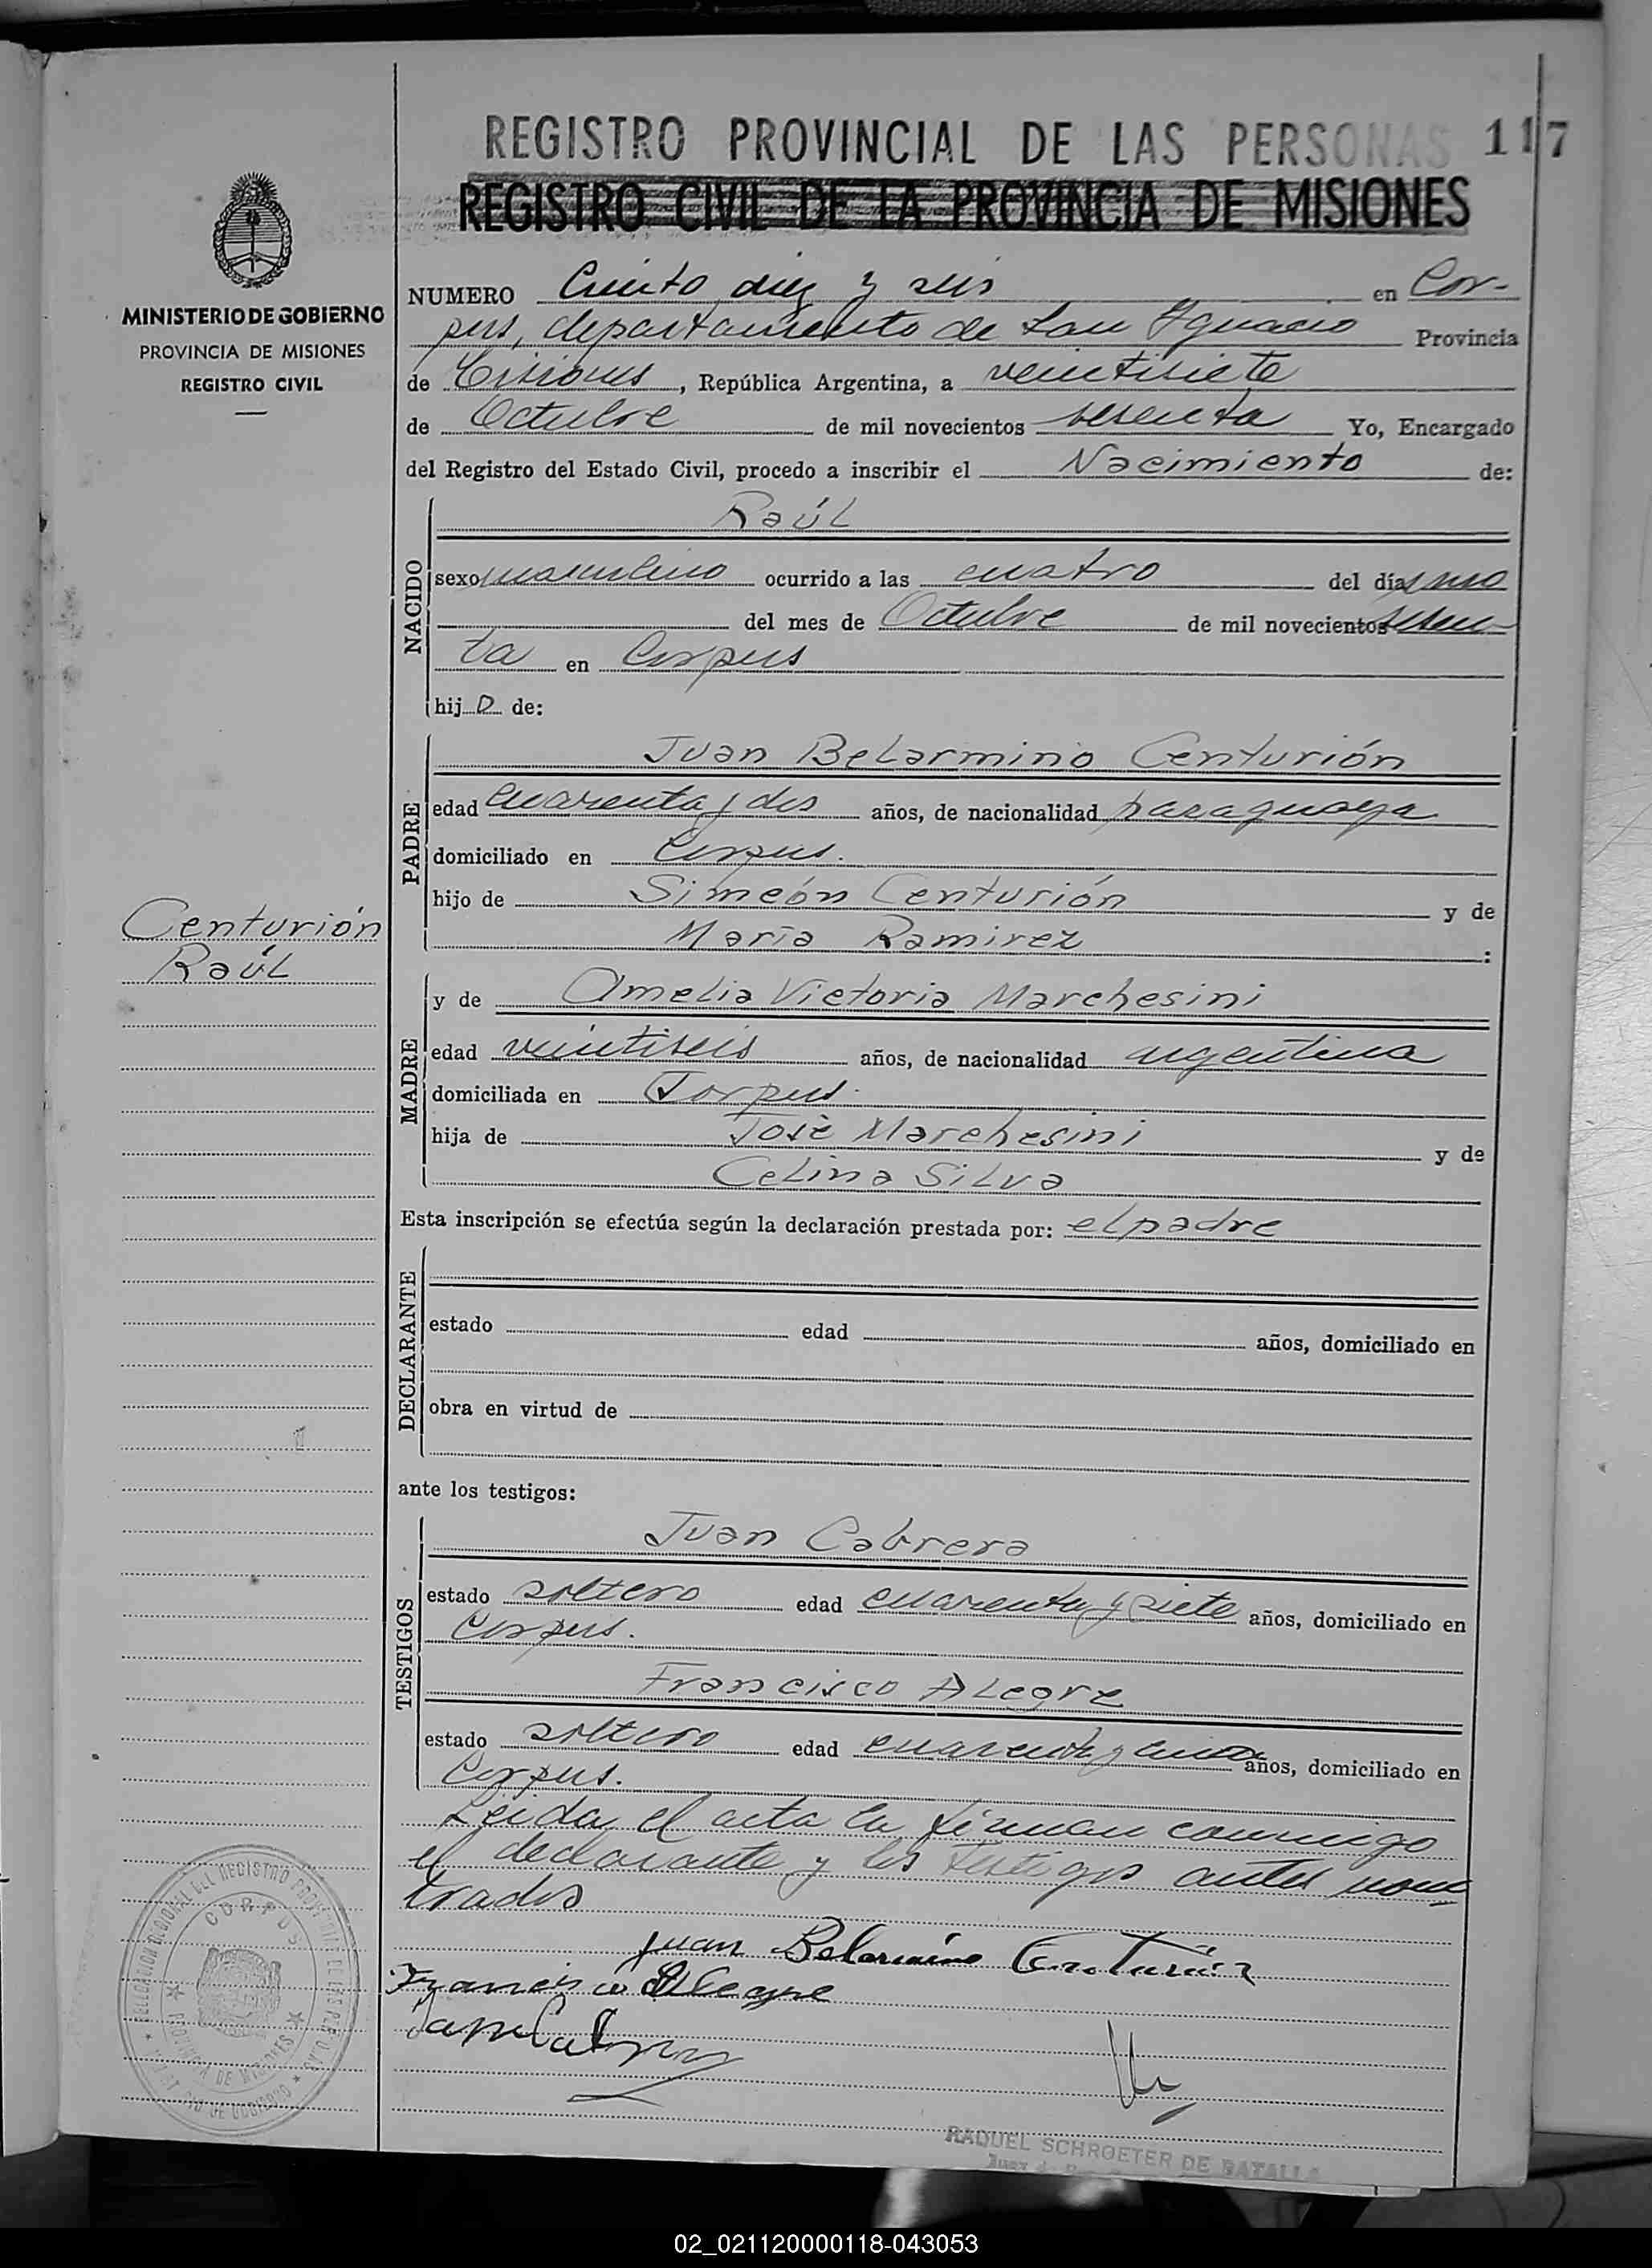 REGISTRO PROVINCIAL DE LAS PERSONAS 117
REGISTRO CIVIL DE LA PROVINCIA DE MISIONES
MINISTERIO DE GOBIERNO
PROVINCIA DE MISIONES
REGISTRO CIVIL
NUMERO Ciento diez y seis en Cor-
pus, departamento de San Ignacio Provincia
de Misiones, República Argentina, a veintisiete
de Octubre de mil novecientos sesenta Yo, Encargado
del Registro del Estado Civil, procedo a inscribir el Nacimiento de:
NACIDO
Raúl
sexo masculino ocurrido a las cuatro del día uno
del mes de Octubre de mil novecientos sesen-
ta en Corpus
hijo de:
PADRE
Juan Belarmino Centurión
edad cuarenta y dos años, de nacionalidad paraguaya
domiciliado en Corpus.
hijo de Simeón Centurión y de
María Ramirez :
Centurión
Raúl
MADRE
y de Amelia Victoria Marchesini
edad veintiseis años, de nacionalidad argentina
domiciliada en Corpus.
hija de José Marchesini y de
Celina Silva
Esta inscripción se efectúa según la declaración prestada por: el padre
DECLARANTE
estado edad años, domiciliado en
obra en virtud de
ante los testigos:
TESTIGOS
Juan Cabrera
estado soltero edad cuarenta y siete años, domiciliado en
Corpus.
Francisco Alegre
estado soltero edad cuarenta y años, domiciliado en
Corpus.
Leida el acta la firman conmigo
el declarante y los testigos antes nom
brados
Juan Belarmino Centurión
Francisco Alegre
DELEGACION REGIONAL DEL REGISTRO PROVINCIAL DE LAS PERSONAS
CORPUS
PROVINCIA DE MISIONES
MINISTERIO DE GOBIERNO
RAQUEL SCHROETER DE BATALLA
Juez de
02_021120000118-043053